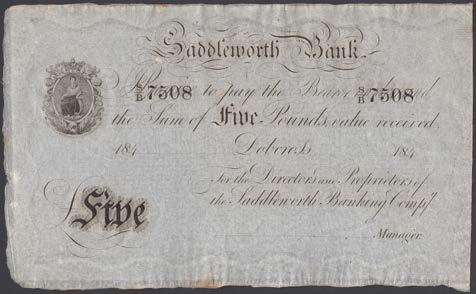 Saddleworth Bank
S/B 7508 to pay the Bearer S/B 7508
the Sum of Five Pounds, value received.
184 Dobcross 184
For the Directors and Proprietors of
the Saddleworth Banking Compy.
Five
Manager